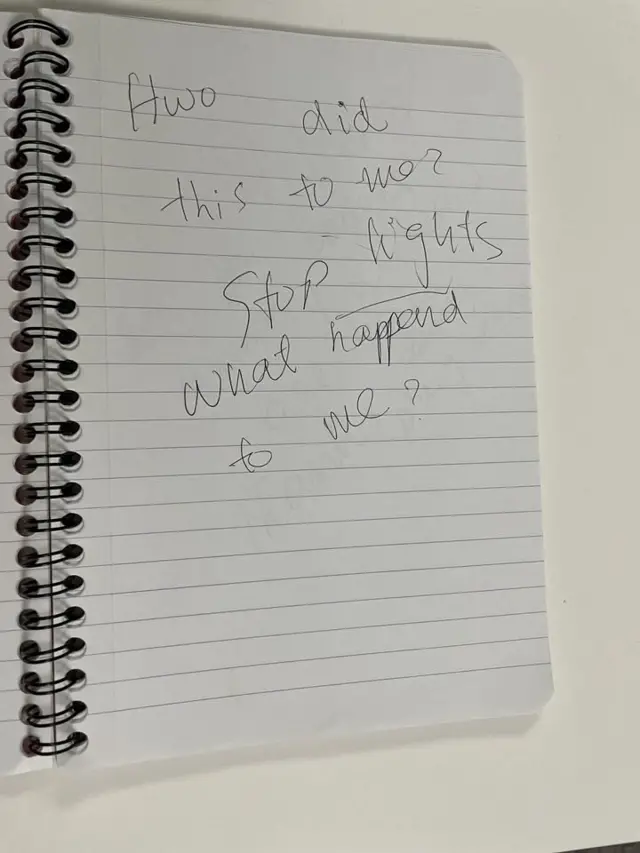 Hwo did
this to me?
- lights
Stop
what happend
to me?